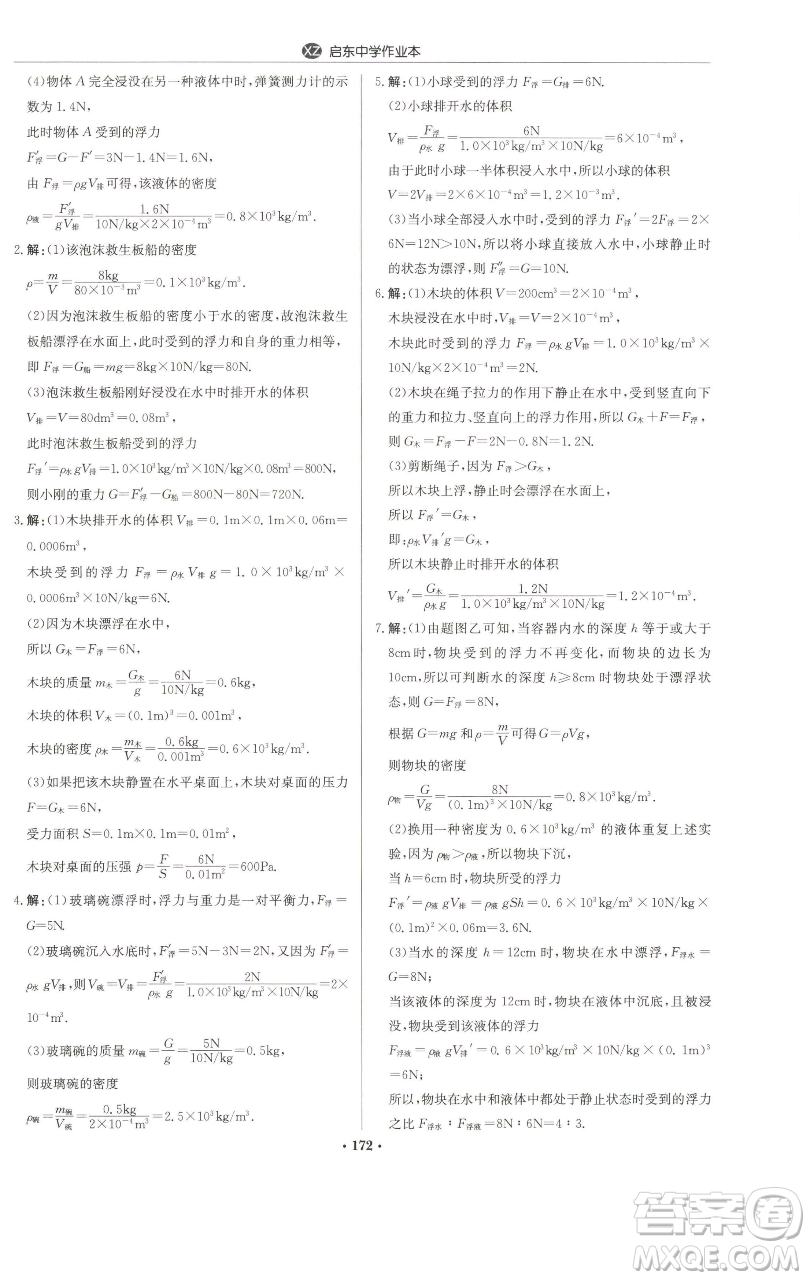 XZ 启东中学作业本
(4)物体 A 完全浸没在另一种液体中时,弹簧测力计的示
数为 1.4N,
此时物体 A 受到的浮力
F′浮=G-F′=3N-1.4N=1.6N,
由 F浮=ρgV排可得,该液体的密度
ρ液=F′浮/gV排=1.6N/10N/kg×2×10⁻⁴m³=0.8×10³kg/m³.
2. 解:(1)该泡沫救生板船的密度
ρ=m/V=8kg/80×10⁻³m³=0.1×10³kg/m³.
(2)因为泡沫救生板船的密度小于水的密度,故泡沫救生
板船漂浮在水面上,此时受到的浮力和自身的重力相等,
即 F浮=G船=mg=8kg×10N/kg=80N.
(3)泡沫救生板船刚好浸没在水中时排开水的体积
V排=V=80dm³=0.08m³,
此时泡沫救生板船受到的浮力
F浮′=ρ水gV排=1.0×10³kg/m³×10N/kg×0.08m³=800N,
则小刚的重力 G=F浮′-G船=800N-80N=720N.
3. 解:(1)木块排开水的体积 V排=0.1m×0.1m×0.06m=
0.0006m³,
木块受到的浮力 F浮=ρ水V排g=1.0×10³kg/m³×
0.0006m³×10N/kg=6N.
(2)因为木块漂浮在水中,
所以 G木=F浮=6N,
木块的质量 m木=G木/g=6N/10N/kg=0.6kg,
木块的体积 V木=(0.1m)³=0.001m³,
木块的密度 ρ木=m木/V木=0.6kg/0.001m³=0.6×10³kg/m³.
(3)如果把该木块静置在水平桌面上,木块对桌面的压力
F=G木=6N,
受力面积 S=0.1m×0.1m=0.01m²,
木块对桌面的压强 p=F/S=6N/0.01m²=600Pa.
4. 解:(1)玻璃碗漂浮时,浮力与重力是一对平衡力,F浮=
G=5N.
(2)玻璃碗沉入水底时,F′浮=5N-3N=2N,又因为 F浮=
ρ水gV排,则 V碗=V排=F′浮/ρ水g=2N/1.0×10³kg/m³×10N/kg=2×
10⁻⁴m³.
(3)玻璃碗的质量 m碗=G/g=5N/10N/kg=0.5kg,
则玻璃碗的密度
ρ碗=m碗/V碗=0.5kg/2×10⁻⁴m³=2.5×10³kg/m³.
5. 解:(1)小球受的浮力 F浮=G排=6N.
(2)小球排开水的体积
V排=F浮/ρ水g=6N/1.0×10³kg/m³×10N/kg=6×10⁻⁴m³,
由于此时小球一半体积浸入水中,所以小球的体积
V=2V排=2×6×10⁻⁴m³=1.2×10⁻³m³.
(3)当小球全部浸入水中时,受到的浮力 F浮′=2F浮=2×
6N=12N>10N,所以将小球直接放入水中,小球静止时
的状态为漂浮,则 F″浮=G=10N.
6. 解:(1)木块的体积 V=200cm³=2×10⁻⁴m³,
木块浸没在水中时,V排=V=2×10⁻⁴m³,
木块此时受到的浮力 F浮=ρ水V排g=1.0×10³kg/m³×
10N/kg×2×10⁻⁴m³=2N.
(2)木块在绳子拉力的作用下静止在水中,受到竖直向下
的重力和拉力、竖直向上的浮力作用,所以 G木+F=F浮,
则 G木=F浮-F=2N-0.8N=1.2N.
(3)剪断绳子,因为 F浮>G木,
所以木块上浮,静止时会漂浮在水面,
所以 F浮′=G木,
即:ρ水V排′g=G木,
所以木块静止时排开水的体积
V排′=G木/ρ水g=1.2N/1.0×10³kg/m³×10N/kg=1.2×10⁻⁴m³.
7. 解:(1)由题图乙可知,当容器内水的深度 h 等于或大于
8cm 时,物块受的浮力不再变化,而物块的边长为
10cm,所以可判断水的深度 h≥8cm 时物块处于漂浮状
态,则 G=F浮=8N,
根据 G=mg 和 ρ=m/V可得 G=ρVg,
则物块的密度
ρ物=G/Vg=8N/(0.1m)³×10N/kg=0.8×10³kg/m³.
(2)换用一种密度为 0.6×10³kg/m³ 的液体重复上述实
验,因为 ρ物>ρ液,所以物块下沉,
当 h=6cm 时,物块所受的浮力
F浮′=ρ液gV排=ρ液gSh=0.6×10³kg/m³×10N/kg×
(0.1m)²×0.06m=3.6N.
(3)当水的深度 h=12cm 时,物块在水中漂浮,F浮水=G=
8N;
当该液体的深度为 12cm 时,物块在液体中沉底,且浸没,
所受该液体的浮力
F浮液=ρ液gV排′=0.6×10³kg/m³×10N/kg×(0.1m)³
=6N;
所以,物块在水中和液体中都处于静止状态时受的浮力
之比 F浮水:F浮液=8N:6N=4:3.
· 172 ·
答案圈
MXQE.COM